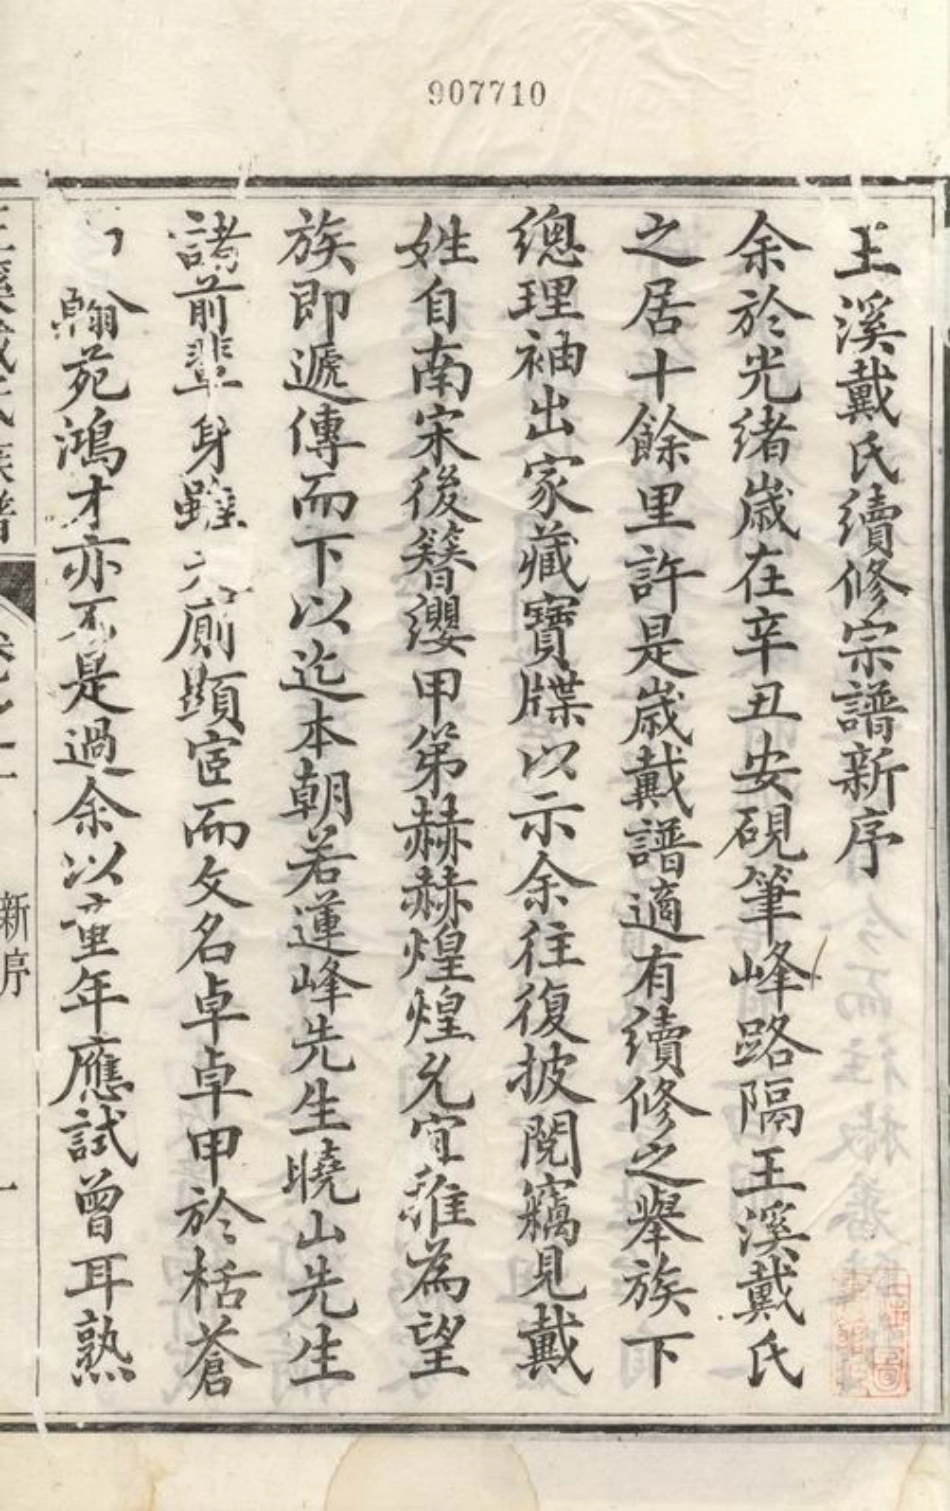 907710
王溪戴氏續修宗譜新序
余於光緒歲在辛丑安硯筆峰路隔王溪戴氏
之居十餘里許是歲戴譜適有續修之舉族下
總理袖出家藏寶牒以示余往復披閱竊見戴
姓自南宋後簪纓甲第赫赫煌煌允宜推為望
族即遞傳而下以迄本朝若蓮峰先生曉山先生
諸前輩身雖 廁顯宦而文名卓卓甲於栝蒼
翰苑鴻才亦不是過余以童年應試曾耳熟
王溪戴氏族譜
新序
一